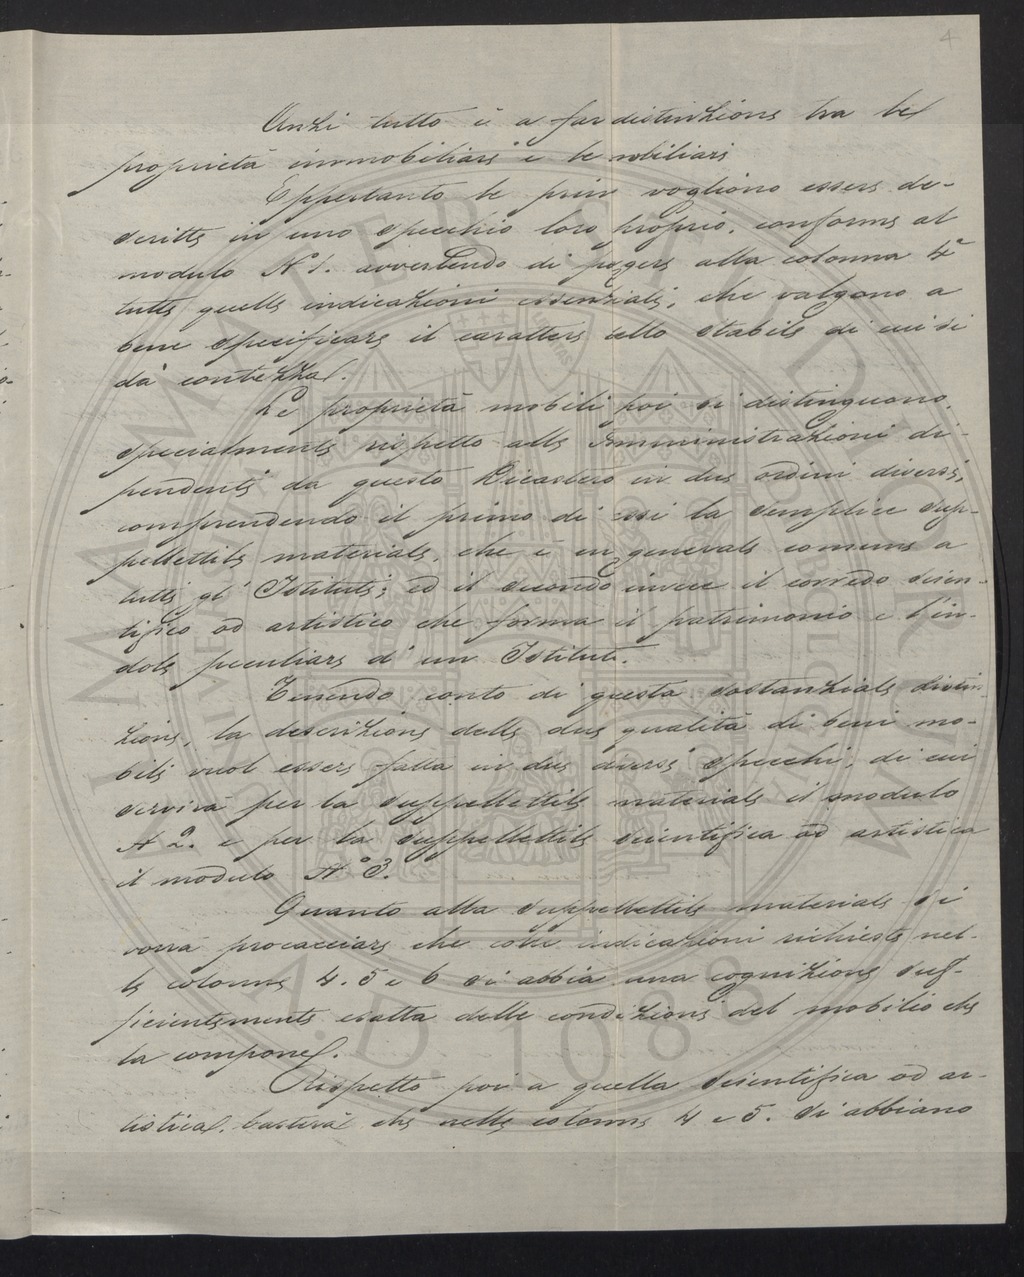 4
Anzi tutto è a far distinzione tra le
proprietà immobiliari e le mobiliari
Eppertanto le prim vogliono essere de-
scritte in uno specchio loro proprio, conforme al
modulo N° 1. avvertendo di porgere alla colonna 4ª
tutte quelle indicazioni essenziali, che valgono a
bene specificare il carattere dello stabile di cui si
dà contezza.
Le proprietà mobili poi si distinguono,
specialmente rispetto alle Amministrazioni di-
pendenti da questo Dicastero in due ordini diversi,
comprendendo il primo di essi la semplice sup-
pellettile materiale, che è in generale comune a
tutti gl' Istituti; ed il secondo invece il corredo scien-
tifico od artistico che forma il patrimonio e l'in-
dole peculiare d' un Istituto.
Tenendo conto di questa sostanziale distin-
zione, la descrizione delle due qualità di beni mo-
bili vuol essere fatta in due diversi specchi, di cui
servirà per la suppellettile materiale il modulo
N 2. e per la suppellettile scientifica od artistica
il modulo N° 3.
Quanto alla suppellettile materiale si
vorrà procacciare che colle indicazioni richieste nel-
le colonne 4. 5 e 6 si abbia una cognizione suf-
ficientemente esatta delle condizioni del mobilio che
la compone.
Rispetto poi a quella scientifica od ar-
tistica, basterà che nelle colonne 4 e 5. si abbiano
ALMA MATER STUDIORUM
UNIVERSITAS BONONIENSIS
A.D. 1088